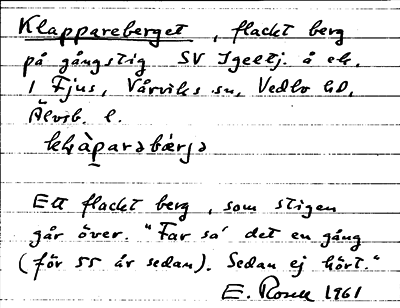 Klappareberget, flackt berg
på gångstig SV Igeltj. å ek.
1 Fjus, Vårviks sn, Vedbo hd,
Älvsb. l.
Ett flackt berg, som stigen
går över. "Far sa' det en gång
(för 55 år sedan). Sedan ej hört."
E. Rosell 1961